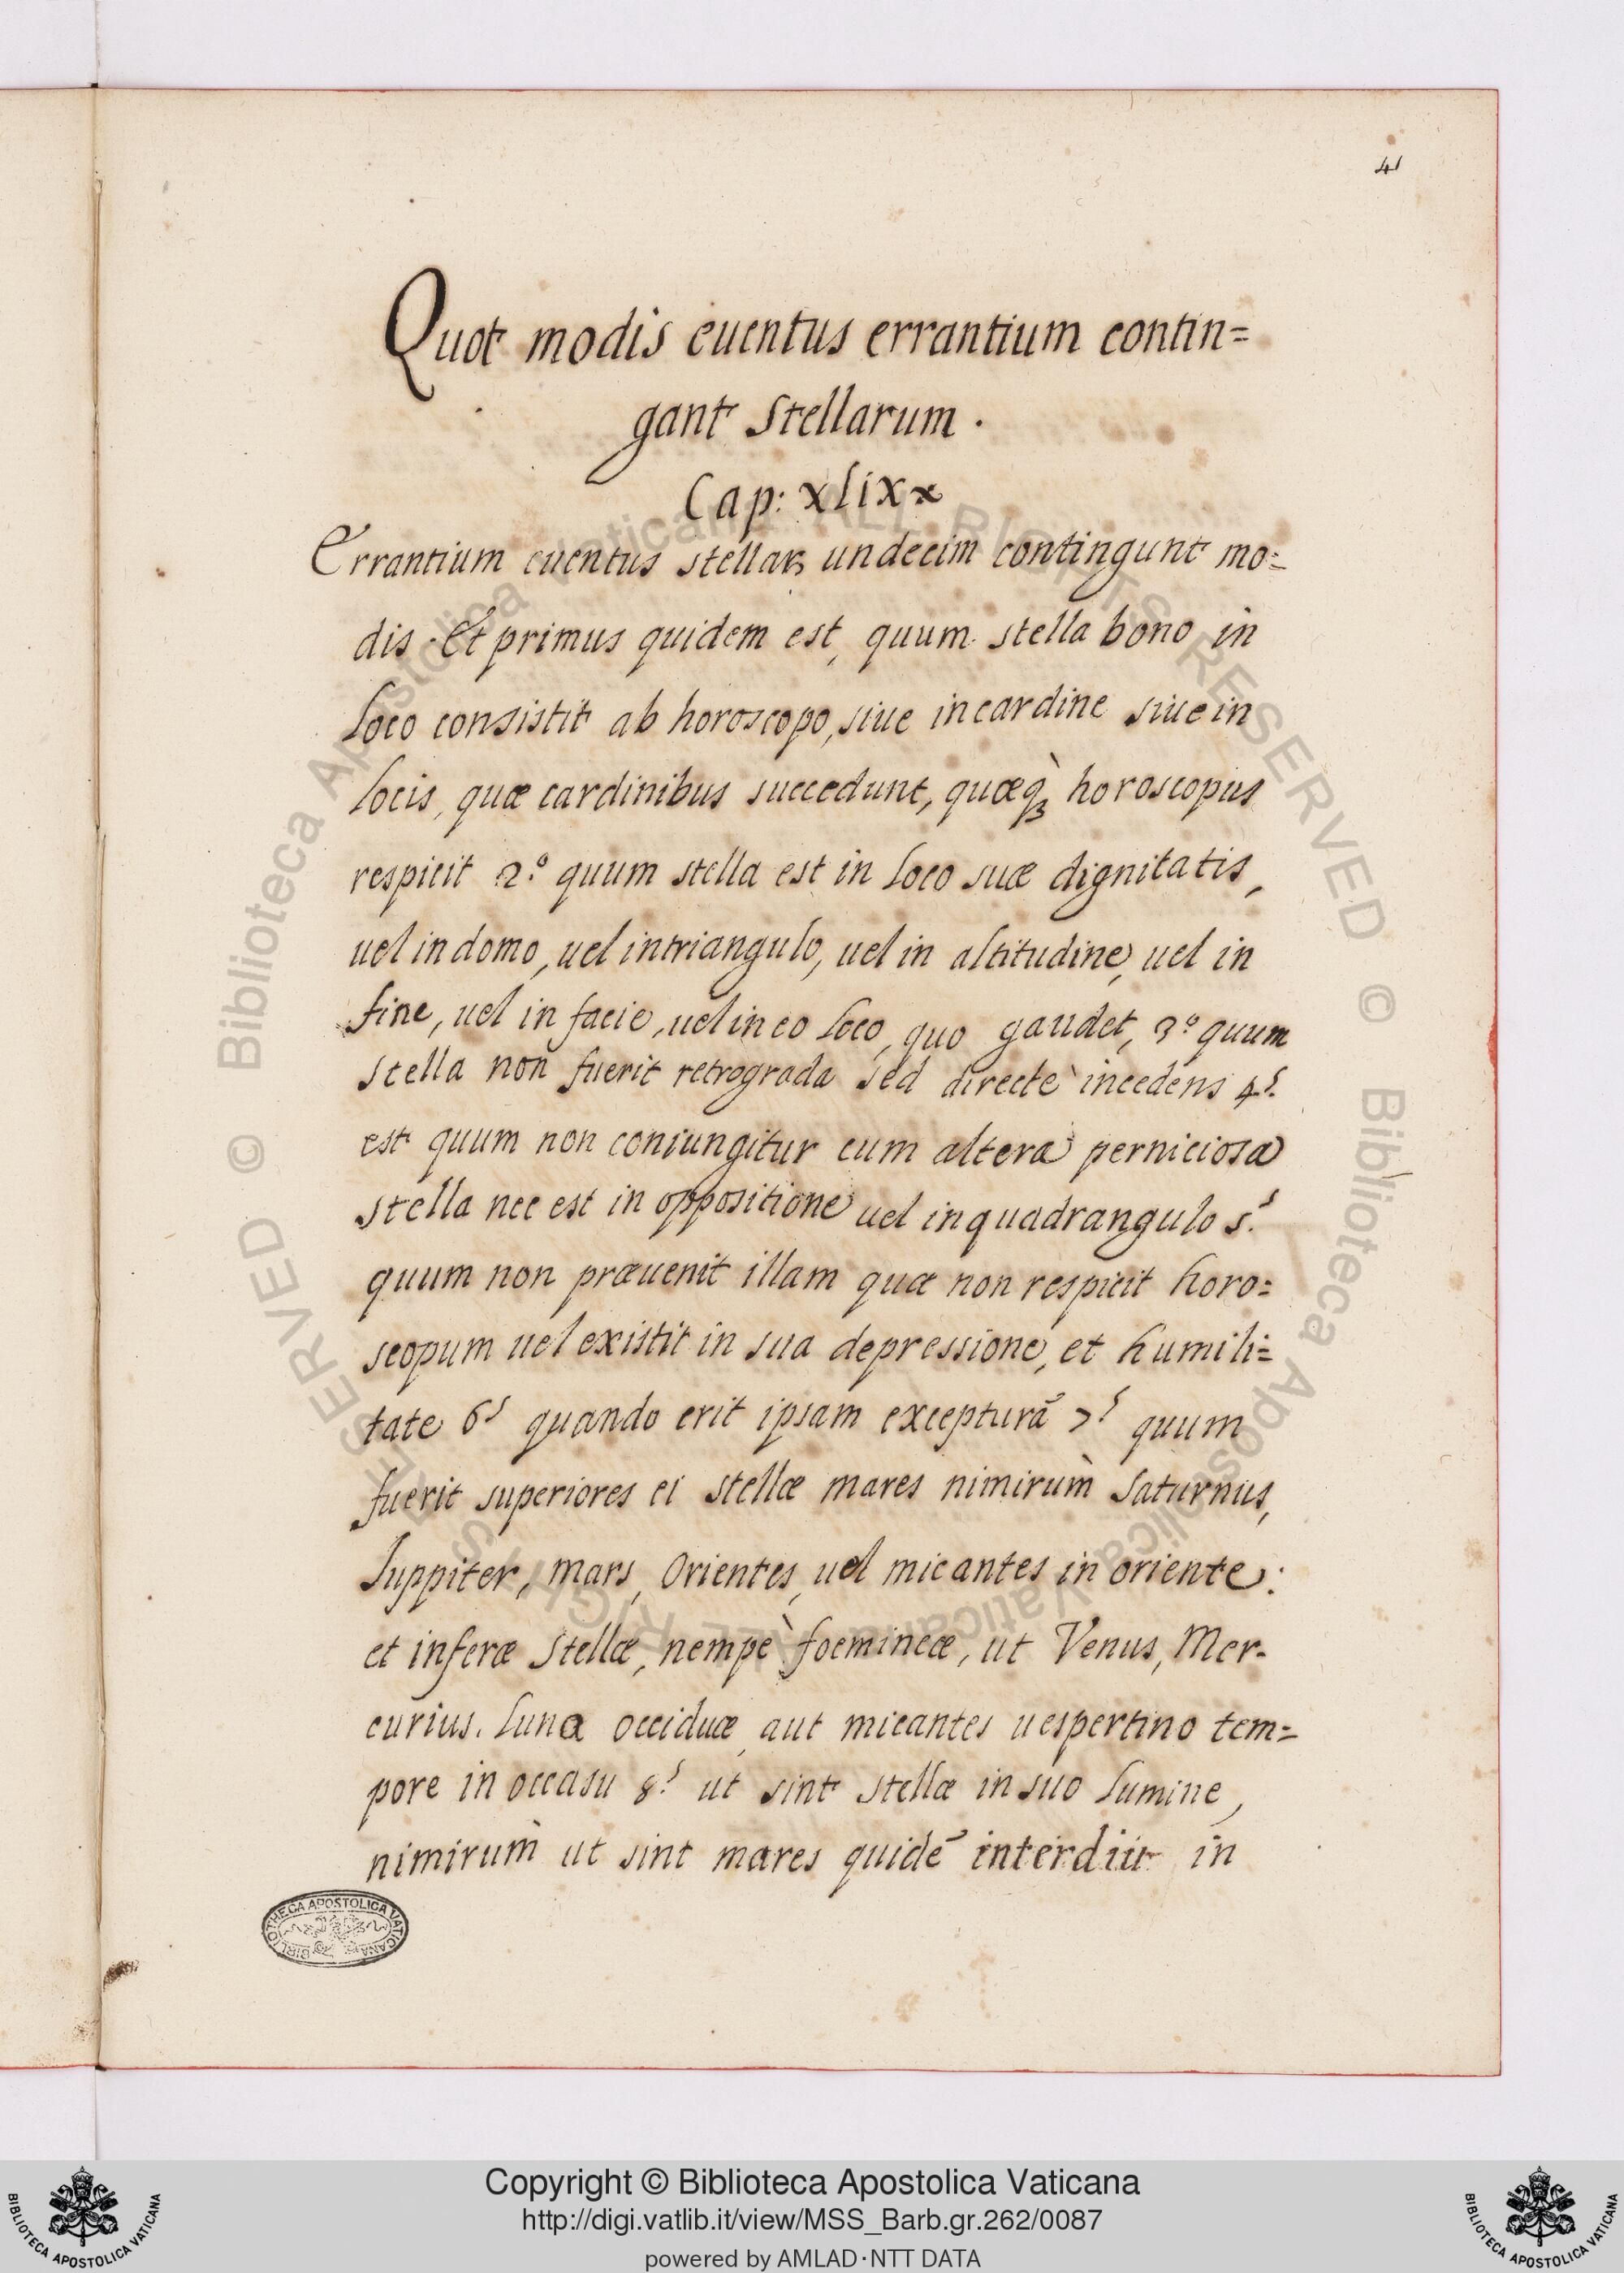 41
Quot modis euentus errantium contin=
gant Stellarum.
Cap: xlix
Errantium euentus stellaꝝ undecim contingunt mo=
dis. Et primus quidem est, quum stella bono in
loco consistit ab horoscopo, siue in cardine siue in
locis, quæ cardinibus succedunt, quæq; horoscopus
respicit 2.º quum stella est in loco suæ dignitatis,
uel in domo, uel in triangulo, uel in altitudine, uel in
fine, uel in facie, uel in eo loco, quo gaudet, 3.º quum
stella non fuerit retrograda sed directè incedens 4.s
est quum non coniungitur cum altera perniciosa
stella nec est in oppositione uel in quadrangulo 5.s
quum non præuenit illam quæ non respicit horo=
scopum uel existit in sua depressione, et humili=
tate 6s quando erit ipsam excepturā 7.s quum
fuerit superiores ei stellæ mares nimirùm Saturnus,
Iuppiter, Mars, Orientes, uel micantes in oriente:
et inferæ Stellæ, nempè foemineæ, ut Venus, Mer-
curius. Luna occiduæ, aut micantes uespertino tem=
pore in occasu 8.s ut sint stellæ in suo lumine,
nimirùm ut sint mares quidē interdiu in
BIBLIOTHECA APOSTOLICA VATICANA
© Biblioteca Apostolica Vaticana ALL RIGHTS RESERVED
© Biblioteca Apostolica Vaticana ALL RIGHTS RESERVED
Copyright © Biblioteca Apostolica Vaticana
http://digi.vatlib.it/view/MSS_Barb.gr.262/0087
powered by AMLAD·NTT DATA
BIBLIOTECA APOSTOLICA VATICANA
BIBLIOTECA APOSTOLICA VATICANA